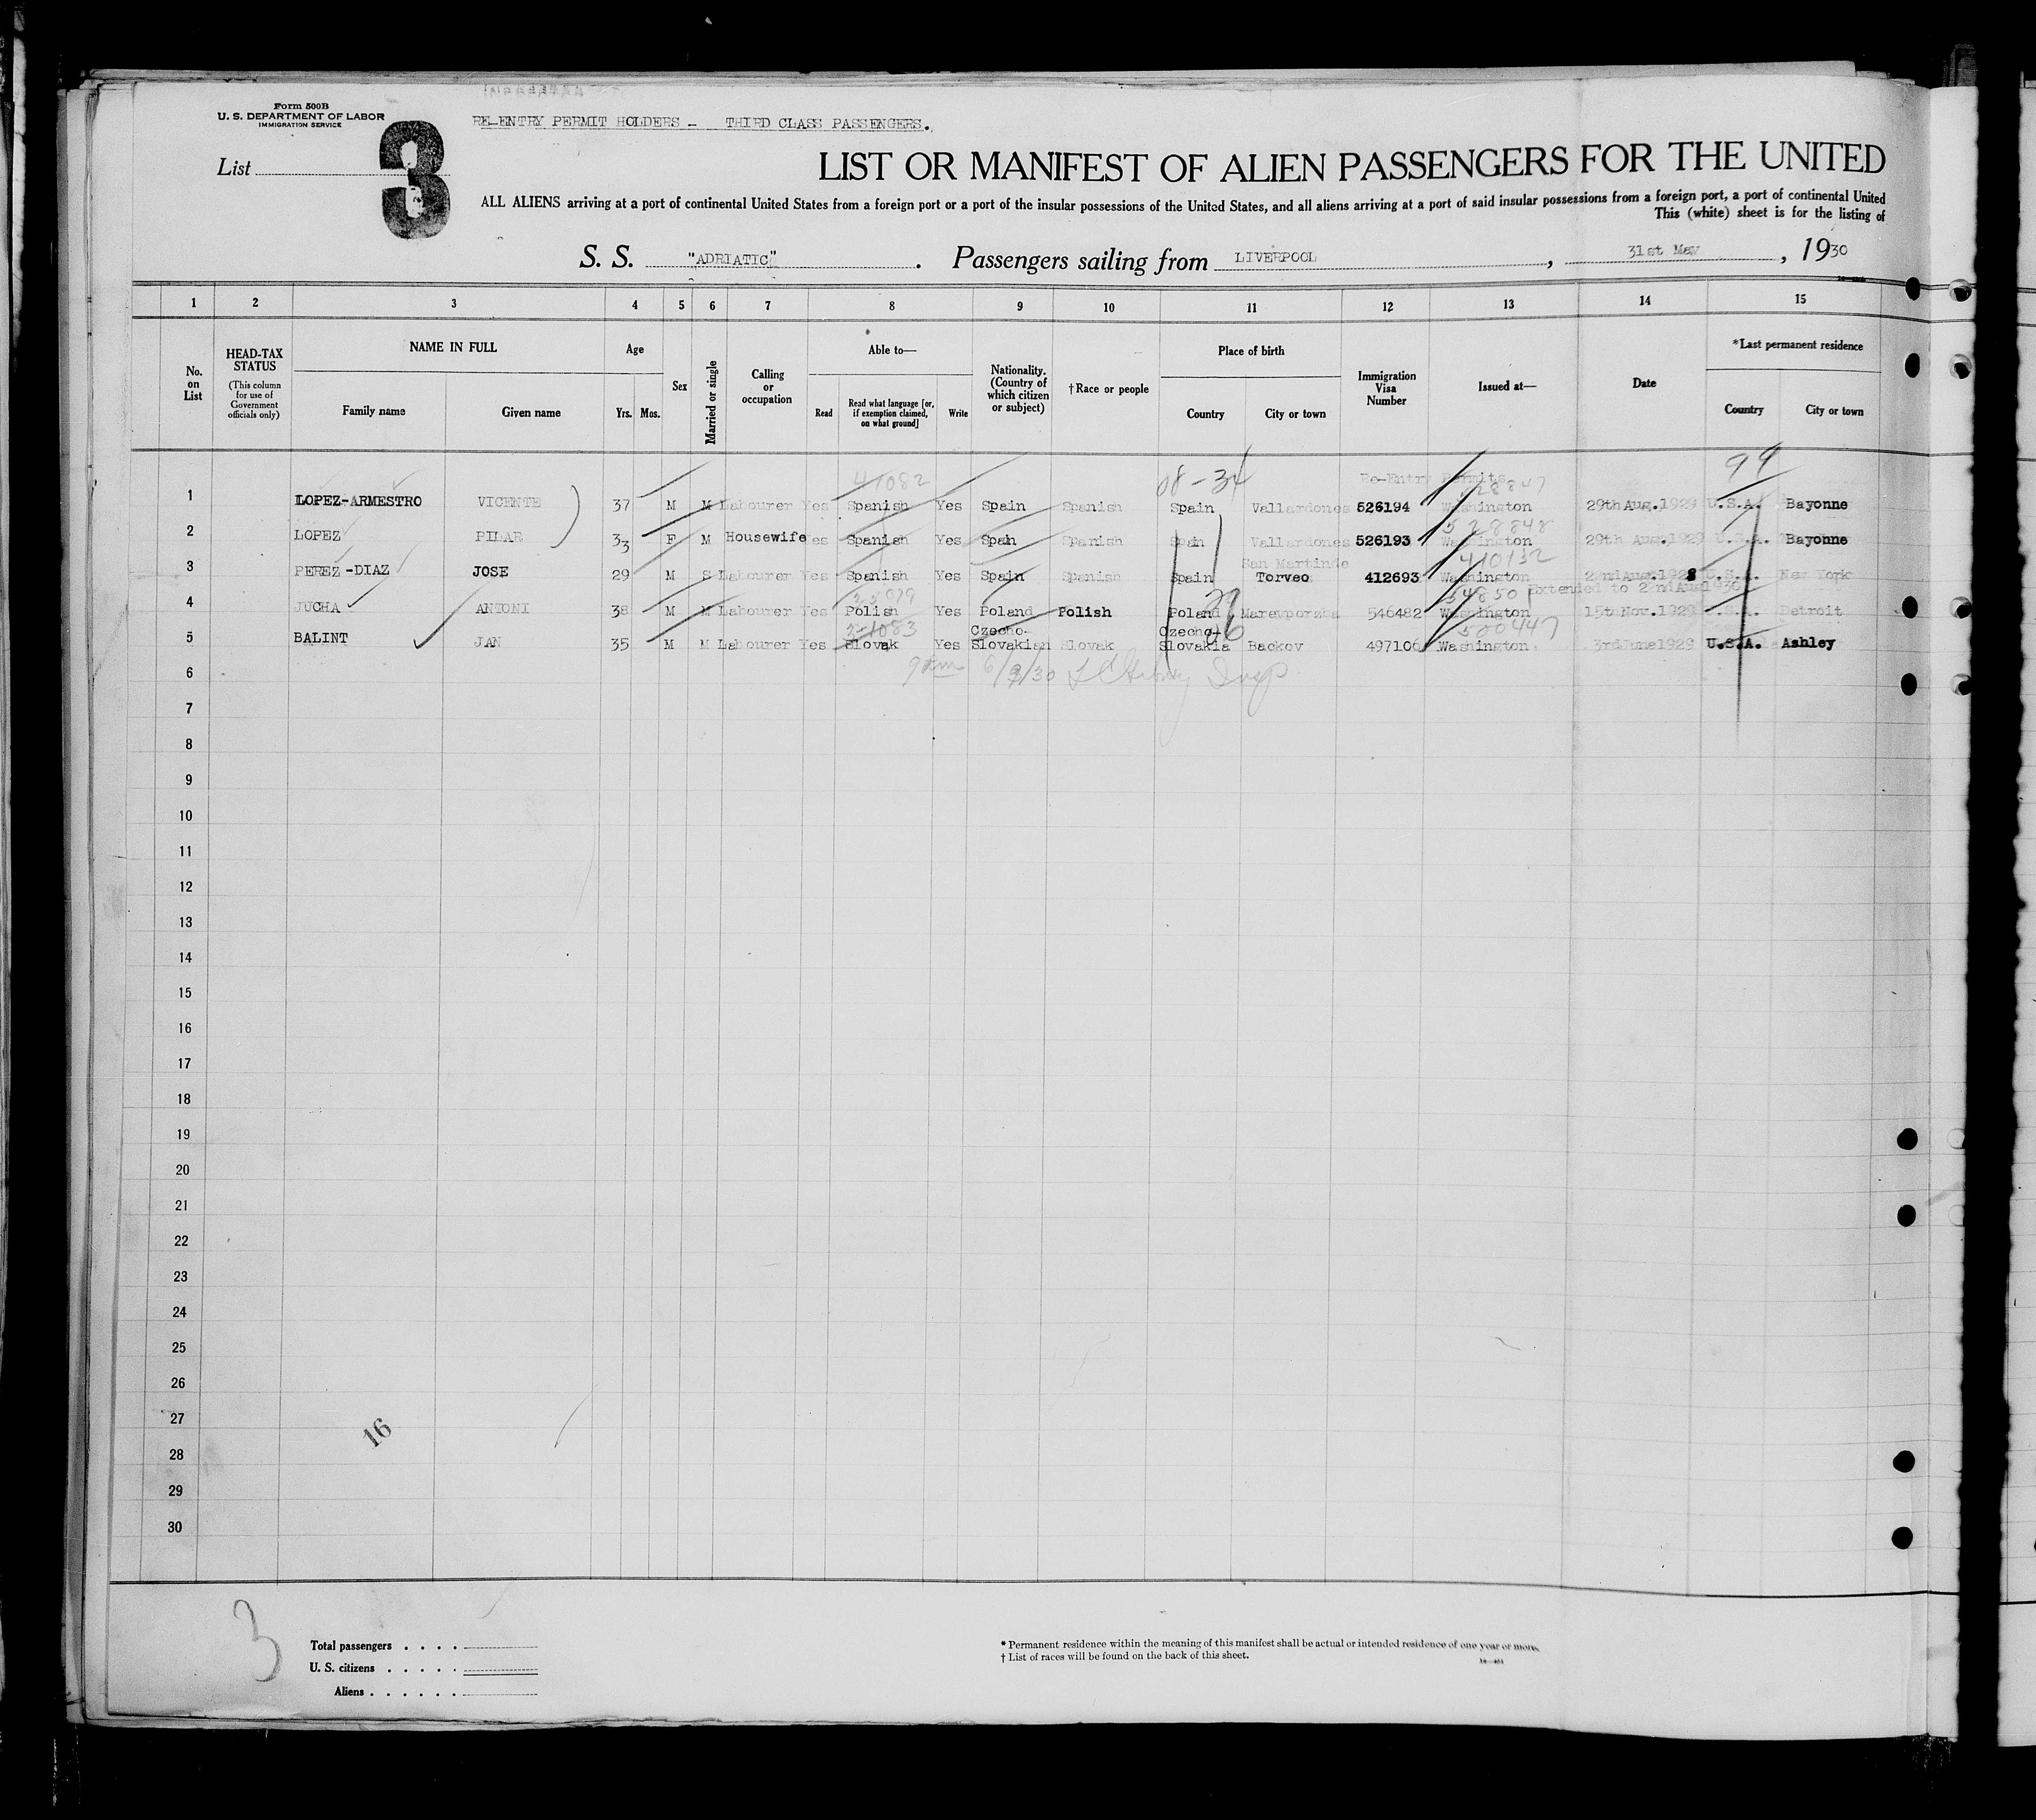 Form 500B
U. S. DEPARTMENT OF LABOR
IMMIGRATION SERVICE
RE-ENTRY PERMIT HOLDERS - THIRD CLASS PASSENGERS.
List 3
LIST OR MANIFEST OF ALIEN PASSENGERS FOR THE UNITED
ALL ALIENS arriving at a port of continental United States from a foreign port or a port of the insular possessions of the United States, and all aliens arriving at a port of said insular possessions from a foreign port, a port of continental United
This (white) sheet is for the listing of
S. S. "ADRIATIC". Passengers sailing from LIVERPOOL, 31st May, 1930
1 2 3 4 5 6 7 8 9 10 11 12 13 14 15
No. on List
HEAD-TAX STATUS
(This column for use of Government officials only)
NAME IN FULL
Family name Given name
Age
Yrs. Mos.
Sex
Married or single
Calling or occupation
Able to—
Read
Read what language [or, if exemption claimed, on what ground]
Write
Nationality. (Country of which citizen or subject)
†Race or people
Place of birth
Country City or town
Immigration Visa Number
Issued at—
Date
*Last permanent residence
Country City or town
41082 08-34 Re-Entry Permits 528847 99
1 LOPEZ-ARMESTRO VICENTE 37 M M Labourer Yes Spanish Yes Spain Spanish Spain Vallardones 526194 Washington 29th Aug. 1929 U.S.A. Bayonne
528848
2 LOPEZ PILAR 33 F M Housewife Yes Spanish Yes Spain Spanish Spain Vallardones 526193 Washington 29th Aug. 1929 U.S.A. Bayonne
San Martinde 410132
3 PEREZ-DIAZ JOSE 29 M S Labourer Yes Spanish Yes Spain Spanish Spain Torveo 412693 Washington 22nd Aug. 1928 U.S.A. New York
29 54850 Extended to 2nd Aug 1930
4 JUCHA ANTONI 38 M M Labourer Yes Polish Yes Poland Polish Poland 546482 Washington 15th Nov. 1929 U.S.A. Detroit
2-1083 Czecho- Czecho- 500447
5 BALINT JAN 35 M M Labourer Yes Slovak Yes Slovakian Slovak Slovakia Backov 497106 Washington 3rd June 1929 U.S.A. Ashley
6 6/9/30 Insp
7
8
9
10
11
12
13
14
15
16
17
18
19
20
21
22
23
24
25
26
27
28
29
30
16
3
Total passengers
U. S. citizens
Aliens
* Permanent residence within the meaning of this manifest shall be actual or intended residence of one year or more.
† List of races will be found on the back of this sheet.